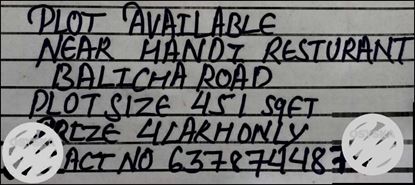 PLOT AVAILABLE
NEAR HANDI RESTURANT
BALICHA ROAD
PLOT SIZE 451 SQFT
PRIZE 41LAKH ONLY
NO 637874487